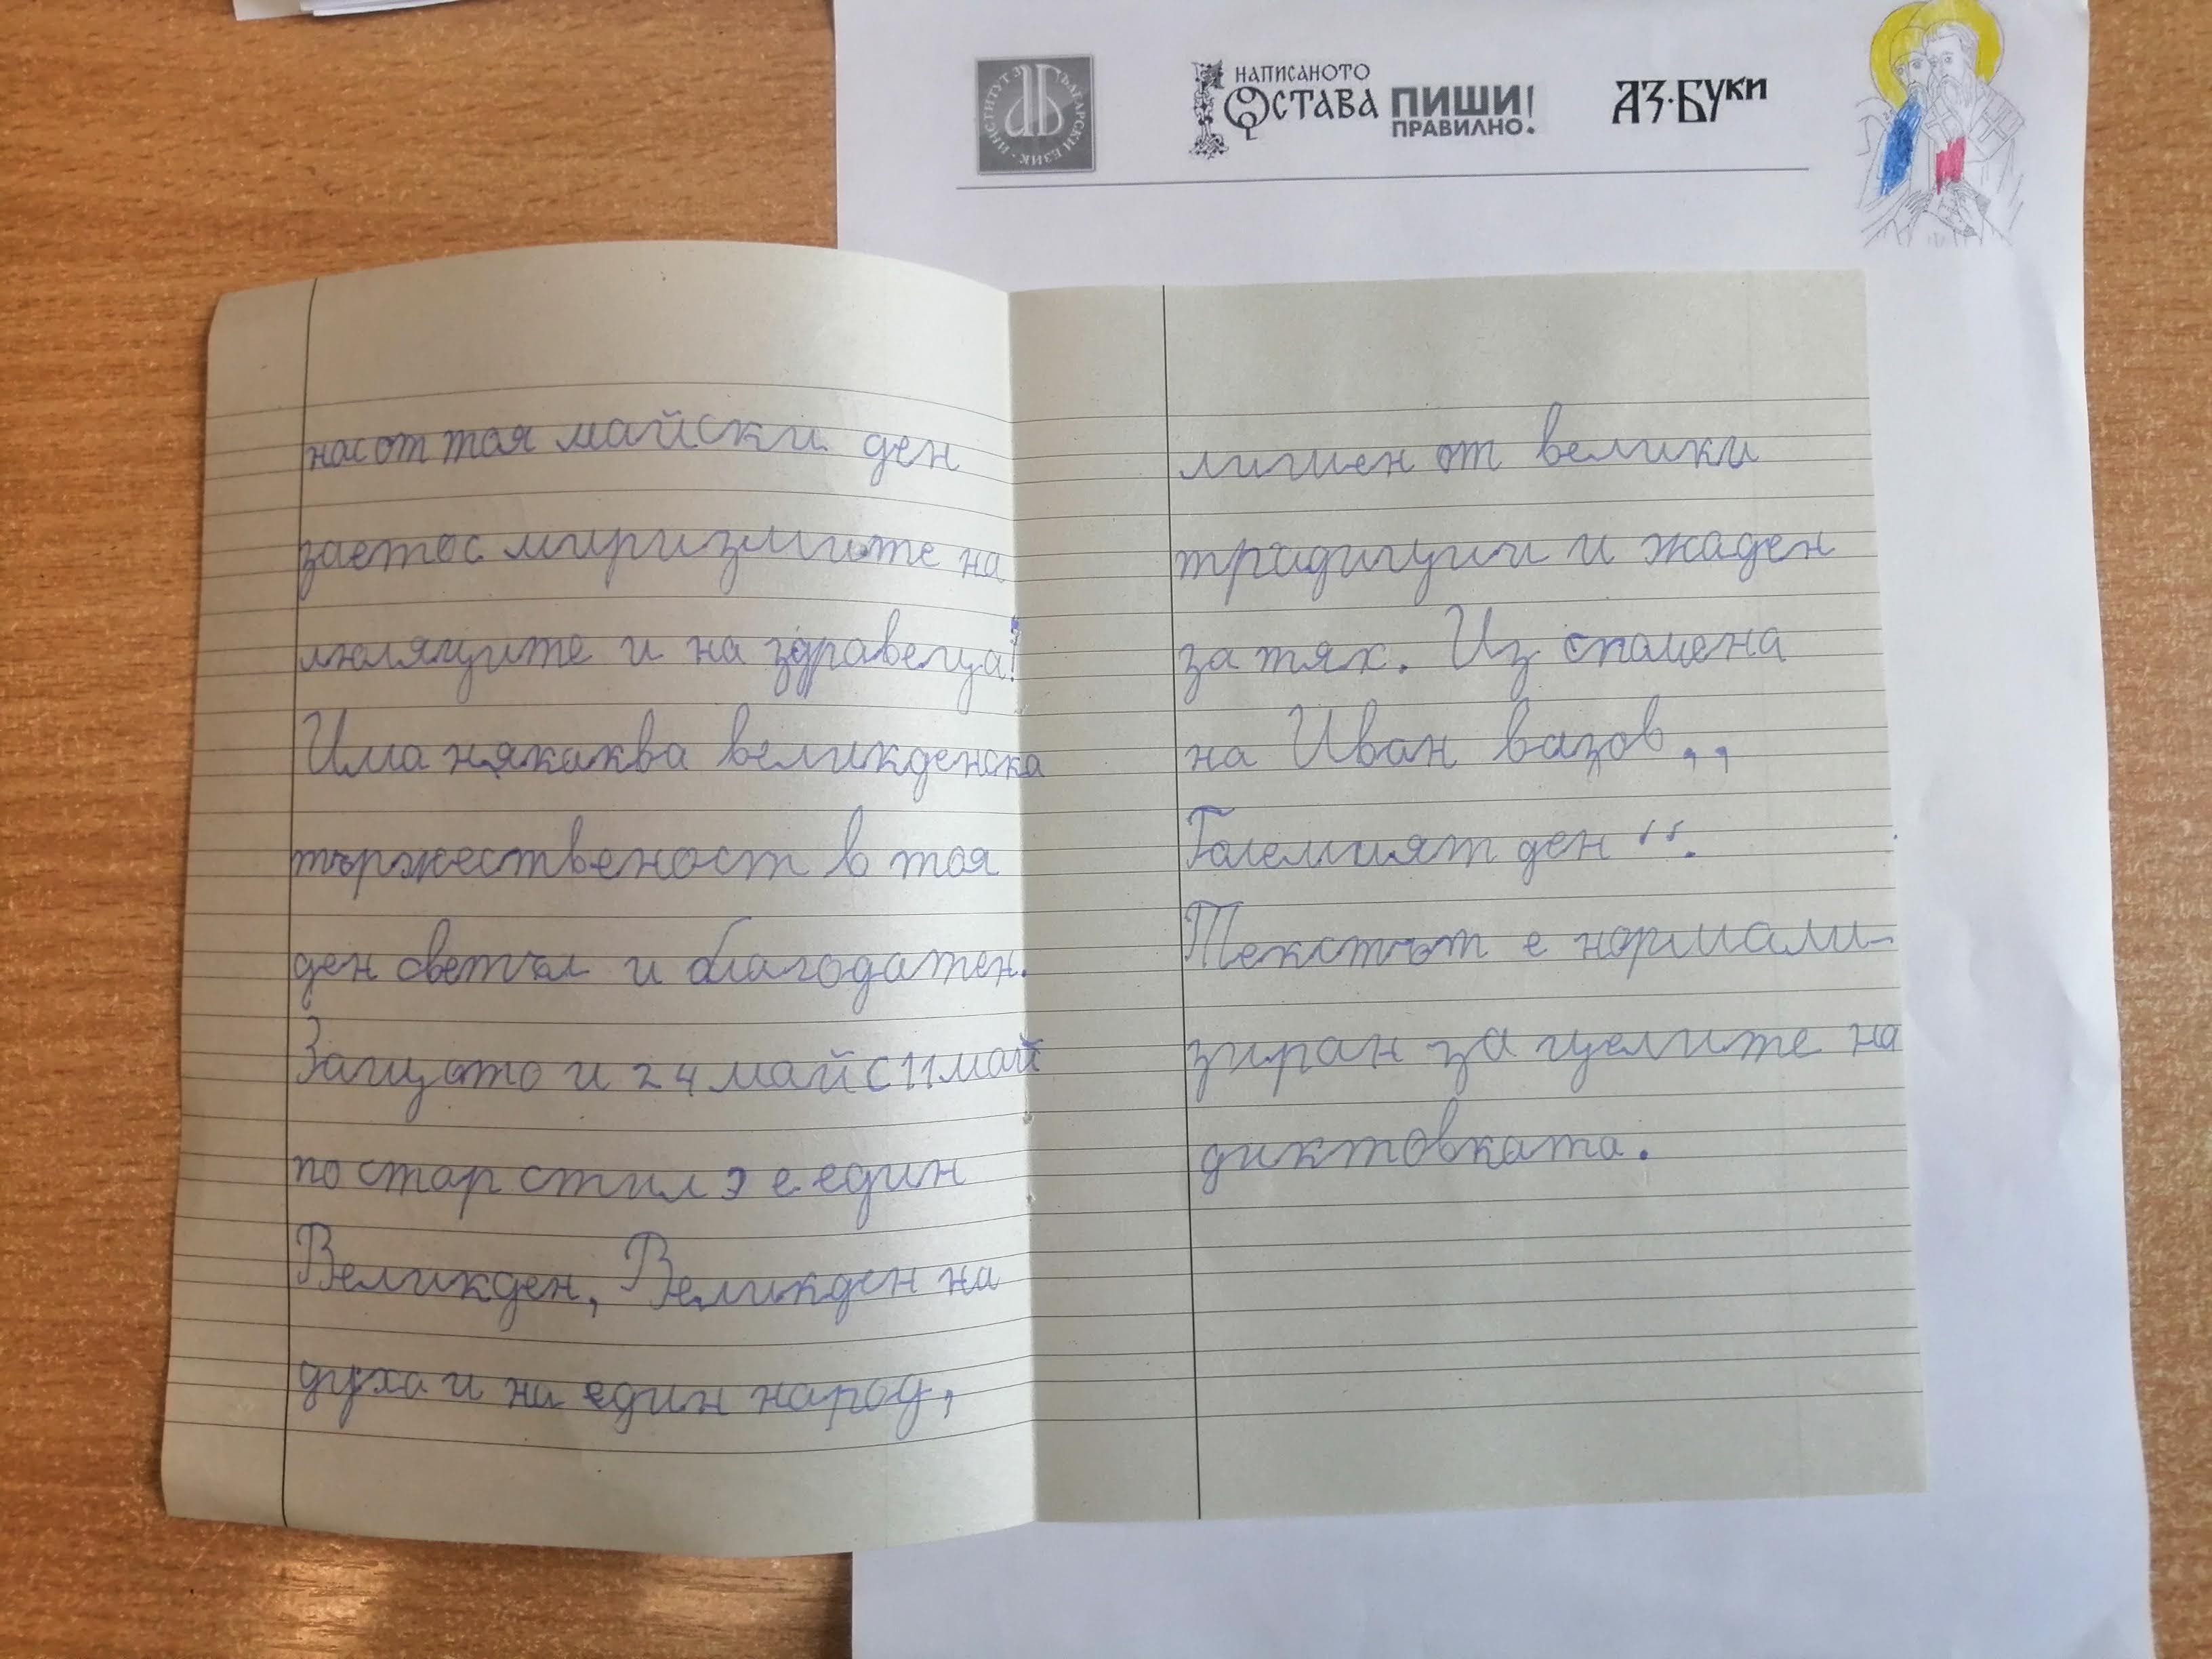 ИНСТИТУТ ЗА БЪЛГАРСКИ ЕЗИК
НАПИСАНОТО
ОСТАВА
ПИШИ!
ПРАВИЛНО.
АЗ·БУКИ
нас от тоя майски ден
заетос миризмите на
люляците и на здравеца!
Има някаква великденска
тържественост в тоя
ден светъл и благодатен.
Защото и 24 май с 11 май
по стар стил э е един
Великден, Великден на
духа и на един народ,
лишен от велики
традиции и жаден
за тях. Из спомена
на Иван вазов ,,
Големият ден “.
Текстът е нормали-
зиран за целите на
диктовката.